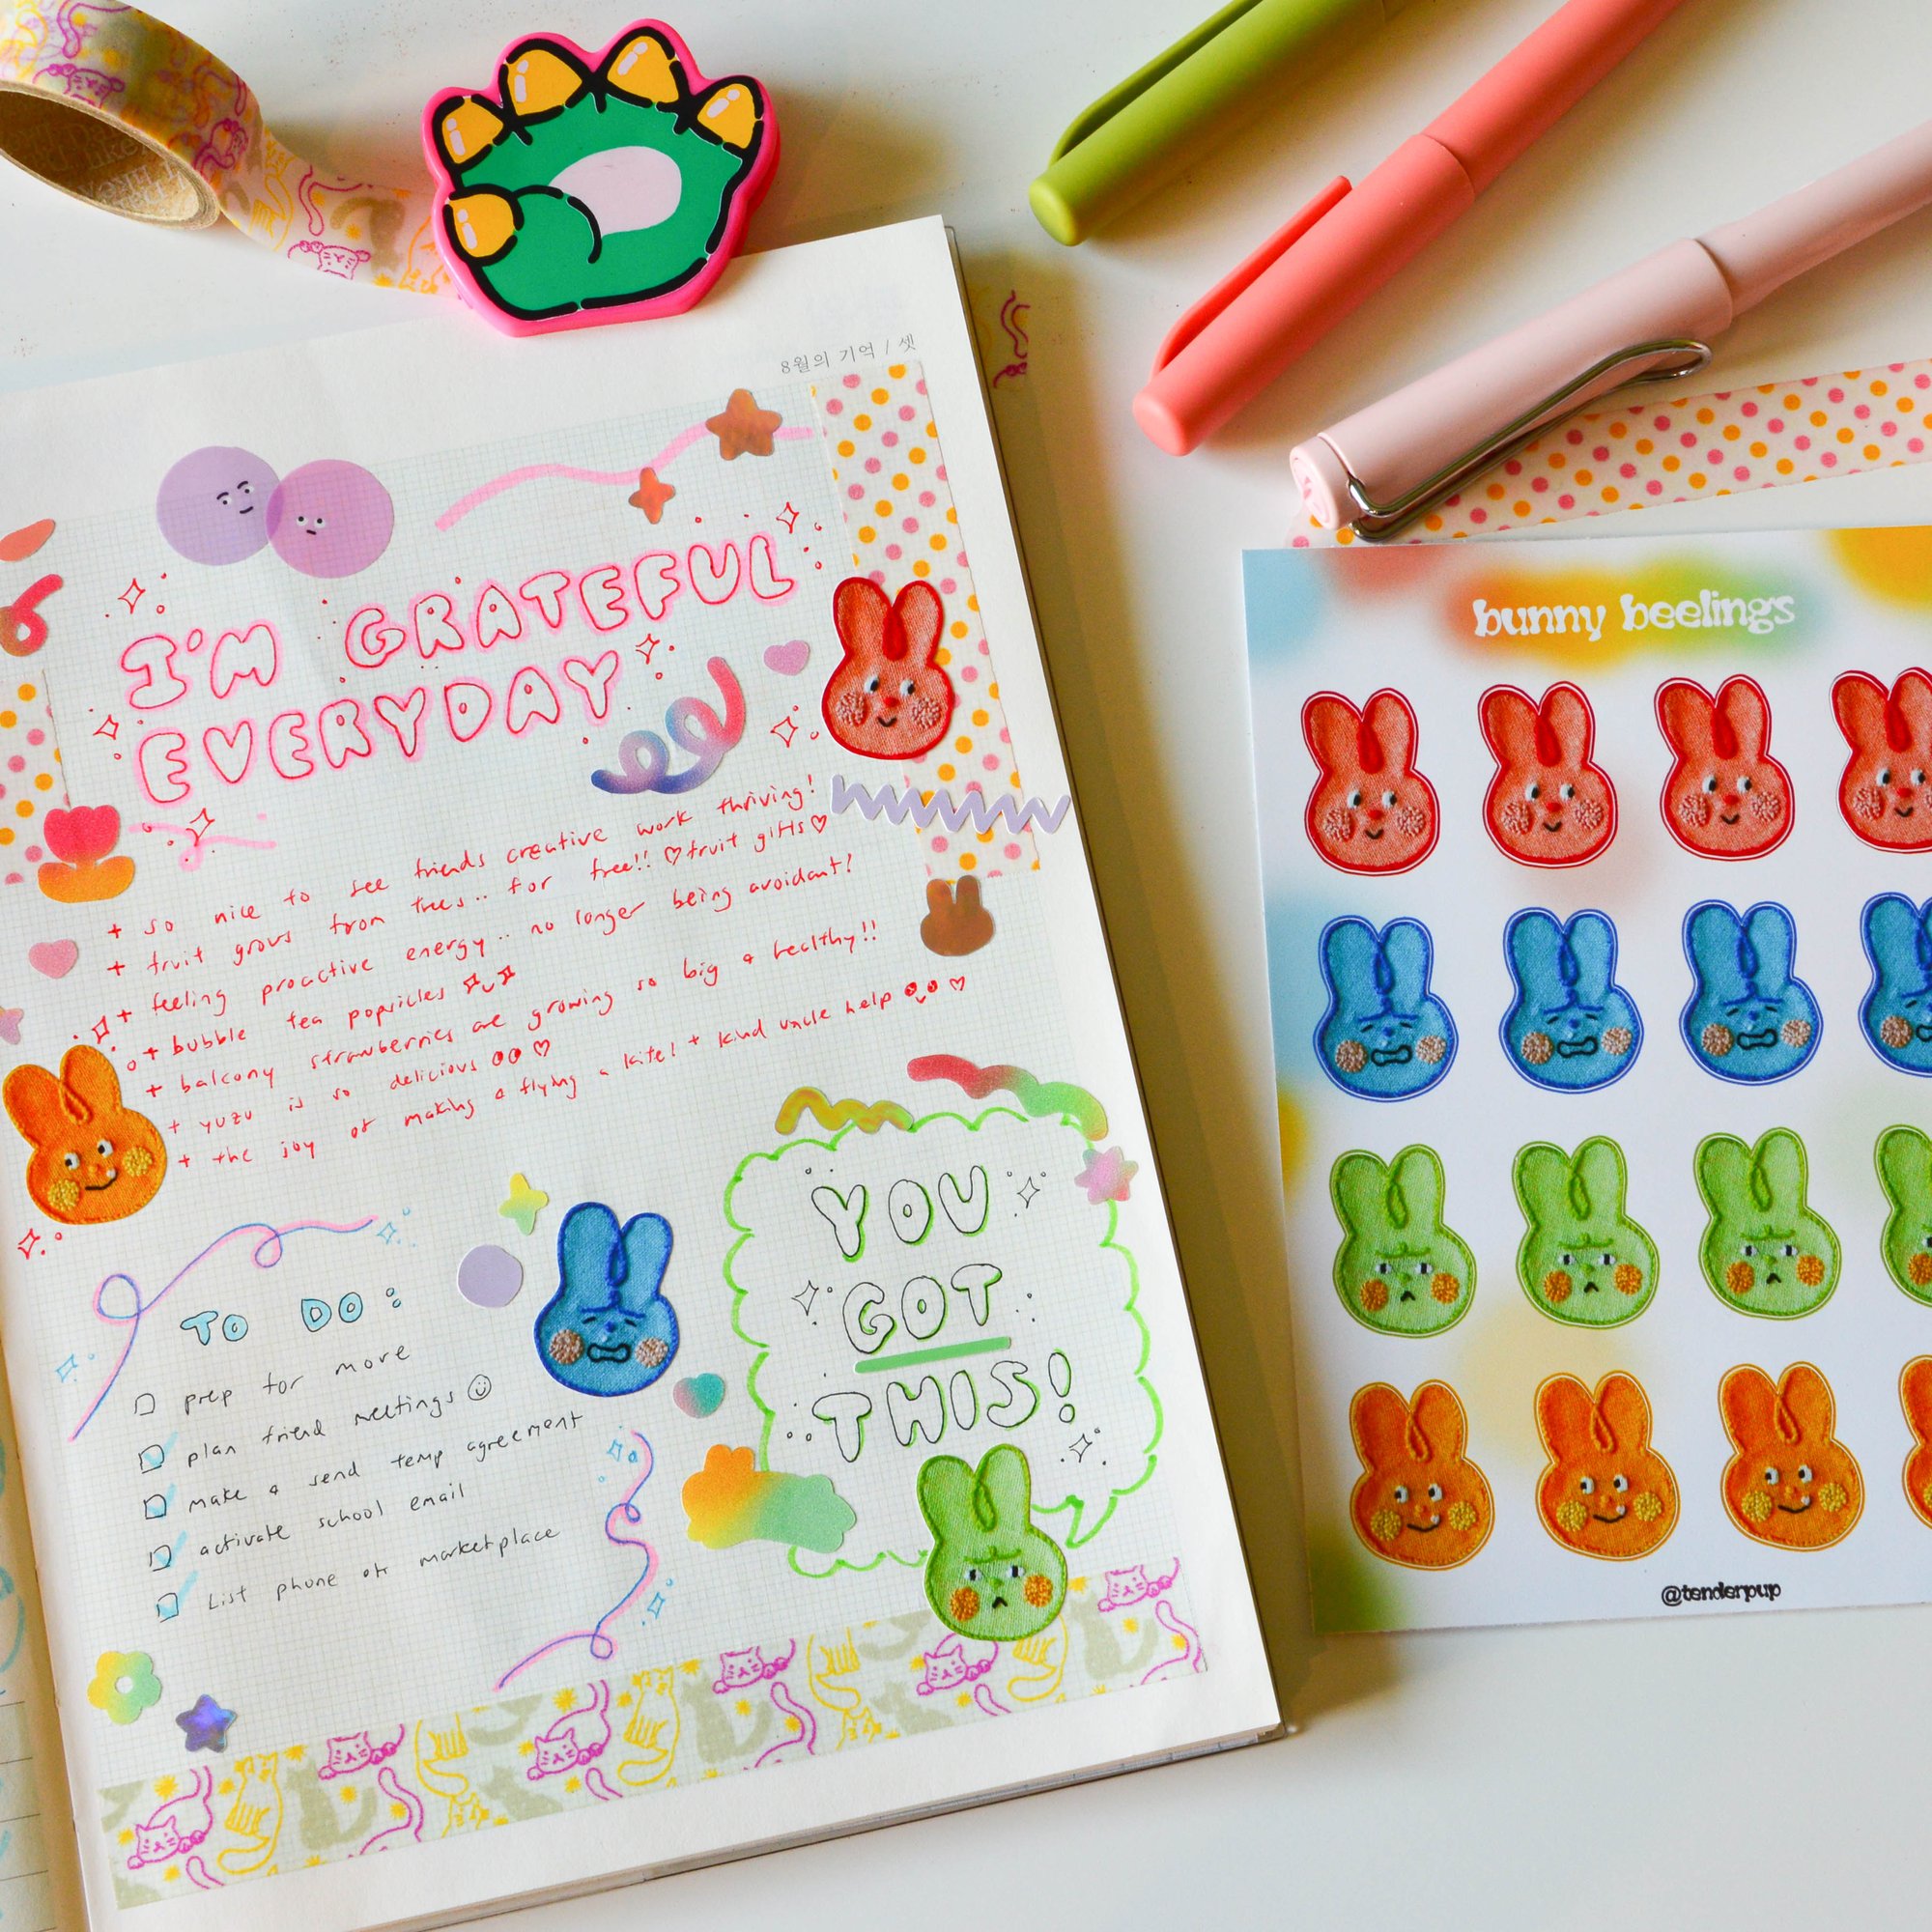 8월의 기억 / 셋
I'M GRATEFUL
EVERYDAY
+ so nice to see friends creative work thriving!
+ fruit grows from trees.. for free!! ♡fruit gifts♡
+ feeling proactive energy.. no longer being avoidant!
+ bubble tea popsicles
+ balcony strawberries are growing so big & healthy!!
+ yuzu is so delicious ♡
+ the joy of making & flying a kite! + kind uncle help ♡
TO DO:
prep for more
plan friend meetings
make & send temp agreement
activate school email
List phone on marketplace
YOU
GOT
THIS!
bunny beelings
@tenderpup